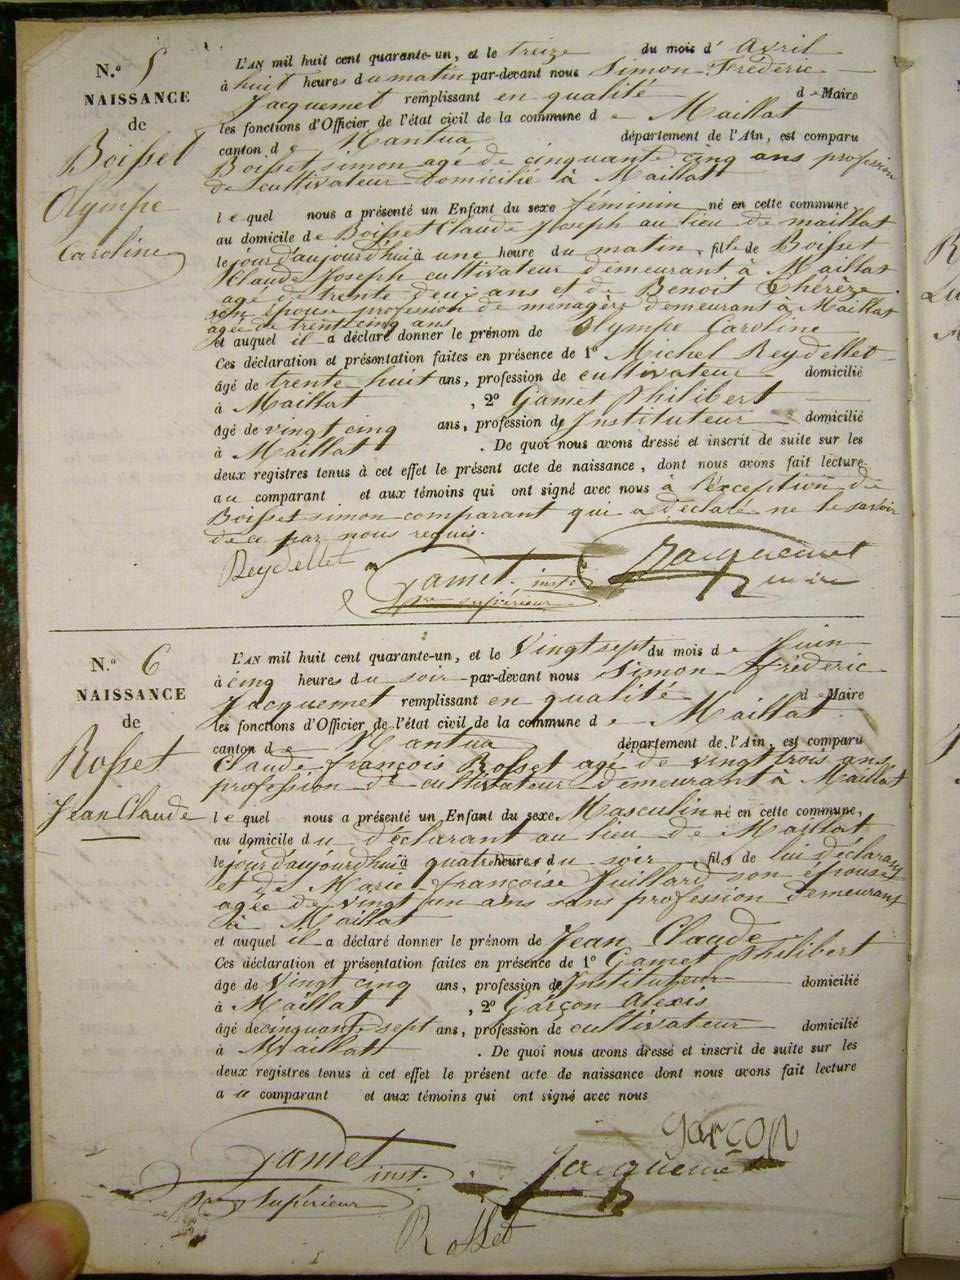 N.º 5
NAISSANCE
de
Boisset
Olympe
Caroline
L'AN mil huit cent quarante-un, et le treize du mois d' Avril
à huit heures du matin par-devant nous Simon Fréderic
Jacquemet remplissant en qualité de Maire
les fonctions d'Officier de l'état civil de la commune de Maillat
canton de Nantua département de l'Ain, est comparu
Boisset simon agé de cinquante cinq ans profession
de cultivateur domicilié à Maillat
lequel nous a présenté un Enfant du sexe féminin né en cette commune
au domicile de Boisset Claude Joseph au lieu de maillat
le jour d'aujourd'hui à une heure du matin, fille de Boisset
Claude Joseph cultivateur demeurant à Maillat
agé de trente deux ans et de Benoit Thérèze
son épouse profession de menagère demeurant à Maillat
agée de trente cinq ans
et auquel il a déclaré donner le prénom de Olympe Caroline
Ces déclaration et présentation faites en présence de 1º Michel Reydellet
âgé de trente huit ans, profession de cultivateur domicilié
à Maillat, 2º Gamet Philibert
âgé de vingt cinq ans, profession de Instituteur domicilié
à Maillat. De quoi nous avons dressé et inscrit de suite sur les
deux registres tenus à cet effet le présent acte de naissance, dont nous avons fait lecture
au comparant et aux témoins qui ont signé avec nous à l'éxception de
Boisset simon comparant qui a déclaré ne le savoir
de ce par nous requis.
Reydellet
Gamet inst.
pre supérieur
Jacquemet
maire
N.º 6
NAISSANCE
de
Rosset
Jean Claude
L'AN mil huit cent quarante-un, et le Vingt sept du mois de Juin
à cinq heures du soir par-devant nous Simon Fréderic
Jacquemet remplissant en qualité de Maire
les fonctions d'Officier de l'état civil de la commune de Maillat
canton de Nantua département de l'Ain, est comparu
Claude françois Rosset agé de vingt trois ans
profession de cultivateur demeurant à Maillat
lequel nous a présenté un Enfant du sexe Masculin né en cette commune,
au domicile du déclarant au lieu de Maillat
le jour d'aujourd'hui à quatre heures du soir, fils de lui déclarant
et de Marie françoise Juillard son épouse
agée de vingt un ans sans profession demeurant
à Maillat
et auquel il a déclaré donner le prénom de Jean Claude
Ces déclaration et présentation faites en présence de 1º Gamet Philibert
âgé de Vingt cinq ans, profession de Instituteur domicilié
à Maillat, 2º Garçon Alexis
âgé de cinquante sept ans, profession de cultivateur domicilié
à Maillat. De quoi nous avons dressé et inscrit de suite sur les
deux registres tenus à cet effet le présent acte de naissance dont nous avons fait lecture
au comparant et aux témoins qui ont signé avec nous
garçon
Gamet inst.
pre supérieur
Jacquemet
Rosset